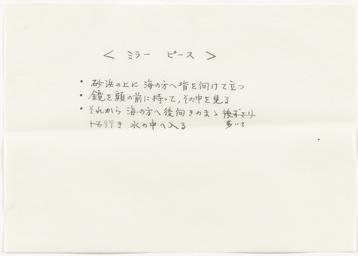 < ミラー ピース >
• 砂浜の上に 海の方へ背を向けて立つ
• 鏡を顔の前に持って,その中を見る
• それから 海の方へ後向きのまゝ
歩いて
行き 水の中へ入る